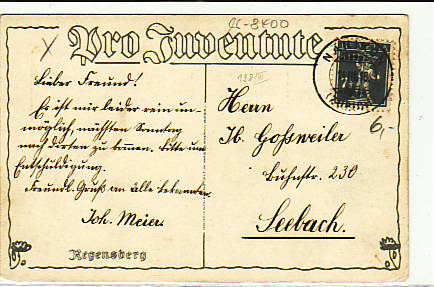 CC-8400
X Pro Juventute
138/III
Lieber Freund!
Es ist mir leider rein un-
möglich, nächsten Sonntag
nach dorten zu kommen. Bitte um
Entschuldigung.
Freundl. Gruß an alle Bekannten
Joh. Meier.
Regensberg
6,-
Herrn
Hb. Goßweiler
Buhnstr. 230
Seebach.